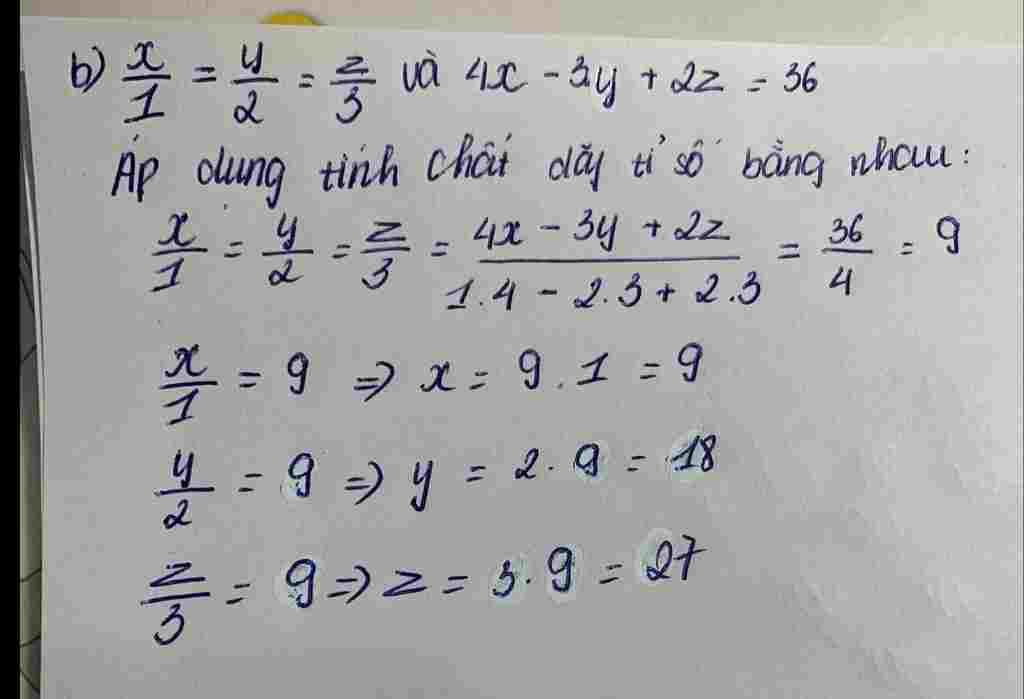 b) x/1 = y/2 = z/3 và 4x - 3y + 2z = 36
Áp dụng tính chất dãy tỉ số bằng nhau:
x/1 = y/2 = z/3 = (4x - 3y + 2z)/(1.4 - 2.3 + 2.3) = 36/4 = 9
x/1 = 9 => x = 9.1 = 9
y/2 = 9 => y = 2.9 = 18
z/3 = 9 => z = 3.9 = 27